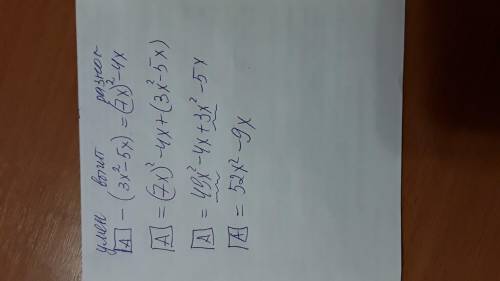 умен вычит разност
[A] - (3x²-5x) = (7x)²-4x
[A] = (7x)²-4x+(3x²-5x)
[A] = 49x²-4x+3x²-5x
[A] = 52x²-9x